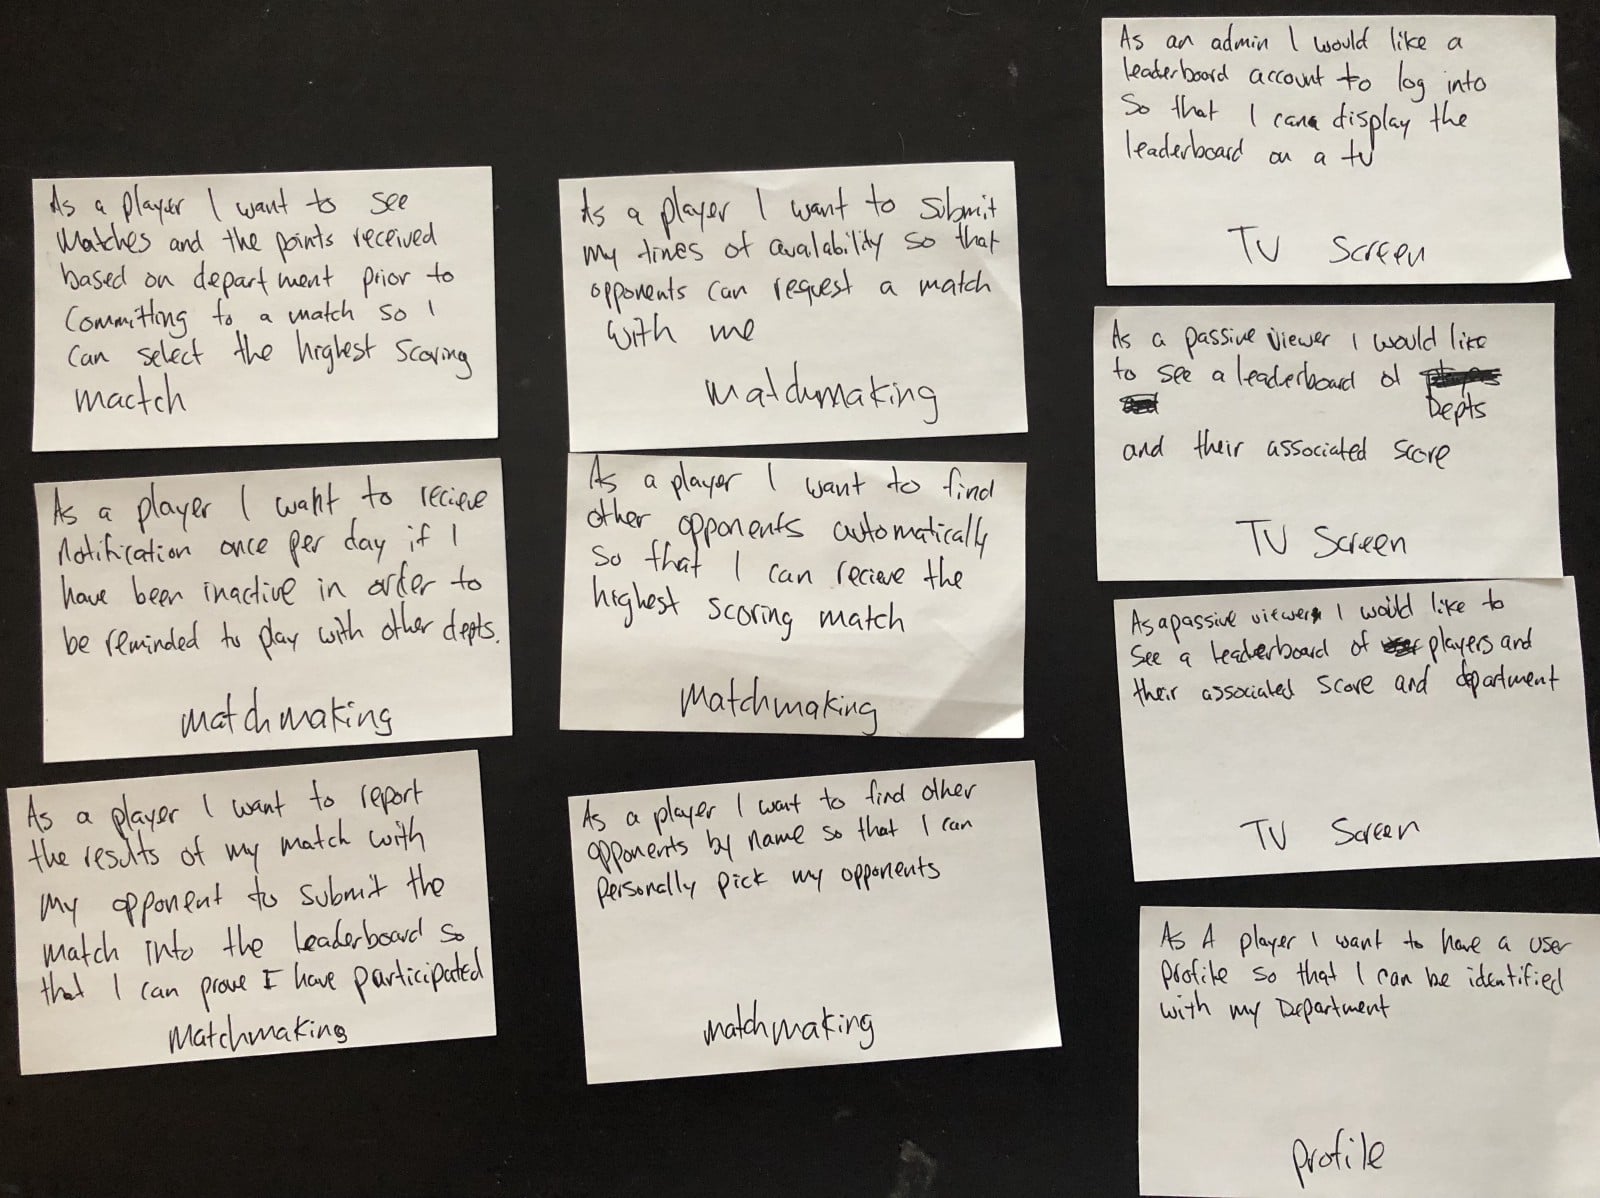 As a player I want to see
Matches and the points received
based on department prior to
Committing to a match so I
can select the highest scoring
mactch
As a player I want to recieve
Notification once per day if I
have been inactive in order to
be reminded to play with other depts.
matchmaking
As a player I want to report
the results of my match with
my opponent to submit the
match into the leaderboard so
that I can prove I have participated
Matchmaking
As a player I want to submit
my times of avalability so that
opponents can request a match
with me
Matchmaking
As a player I want to find
other opponents automatically
so that I can recieve the
highest scoring match
Matchmaking
As a player I want to find other
opponents by name so that I can
Personally pick my opponents
matchmaking
As an admin I would like a
leaderboard account to log into
So that I can display the
leaderboard on a tv
TV Screen
As a passive viewer I would like
to see a leaderboard of
Depts
and their associated score
TV Screen
As a passive viewer I would like to
see a leaderboard of players and
their associated score and department
TV Screen
As A player I want to have a user
profile so that I can be identified
with my Department
profile